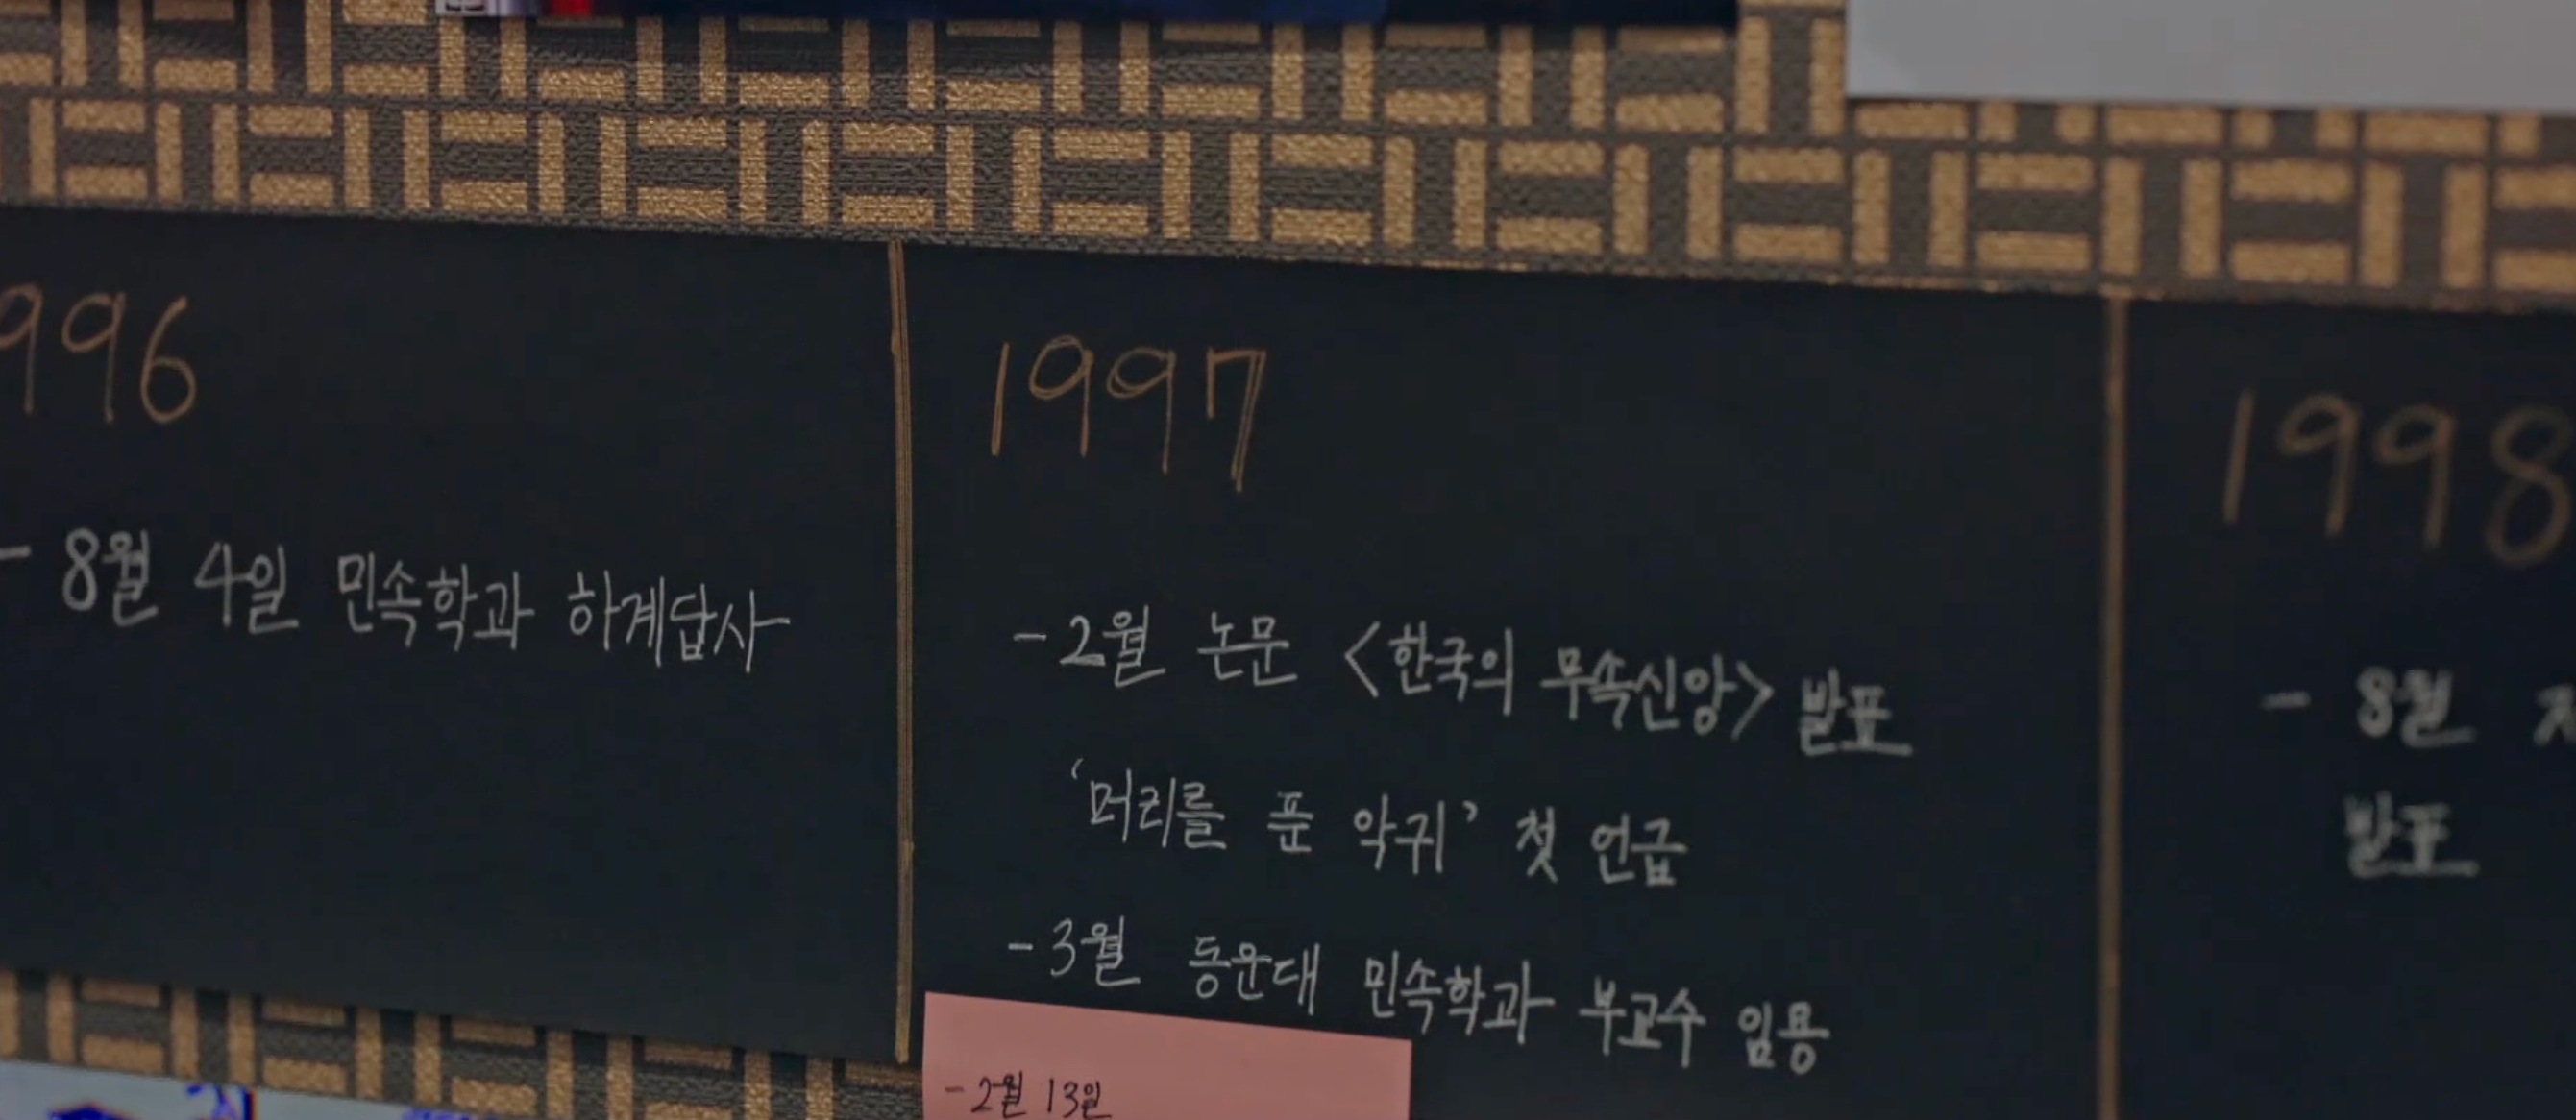 996
- 8월 4일 민속학과 하계답사
1997
- 2월 논문 <한국의 무속신앙> 발표
'머리를 푼 악귀' 첫 언급
- 3월 동운대 민속학과 부교수 임용
- 2월 13일
1998
- 8월
발표